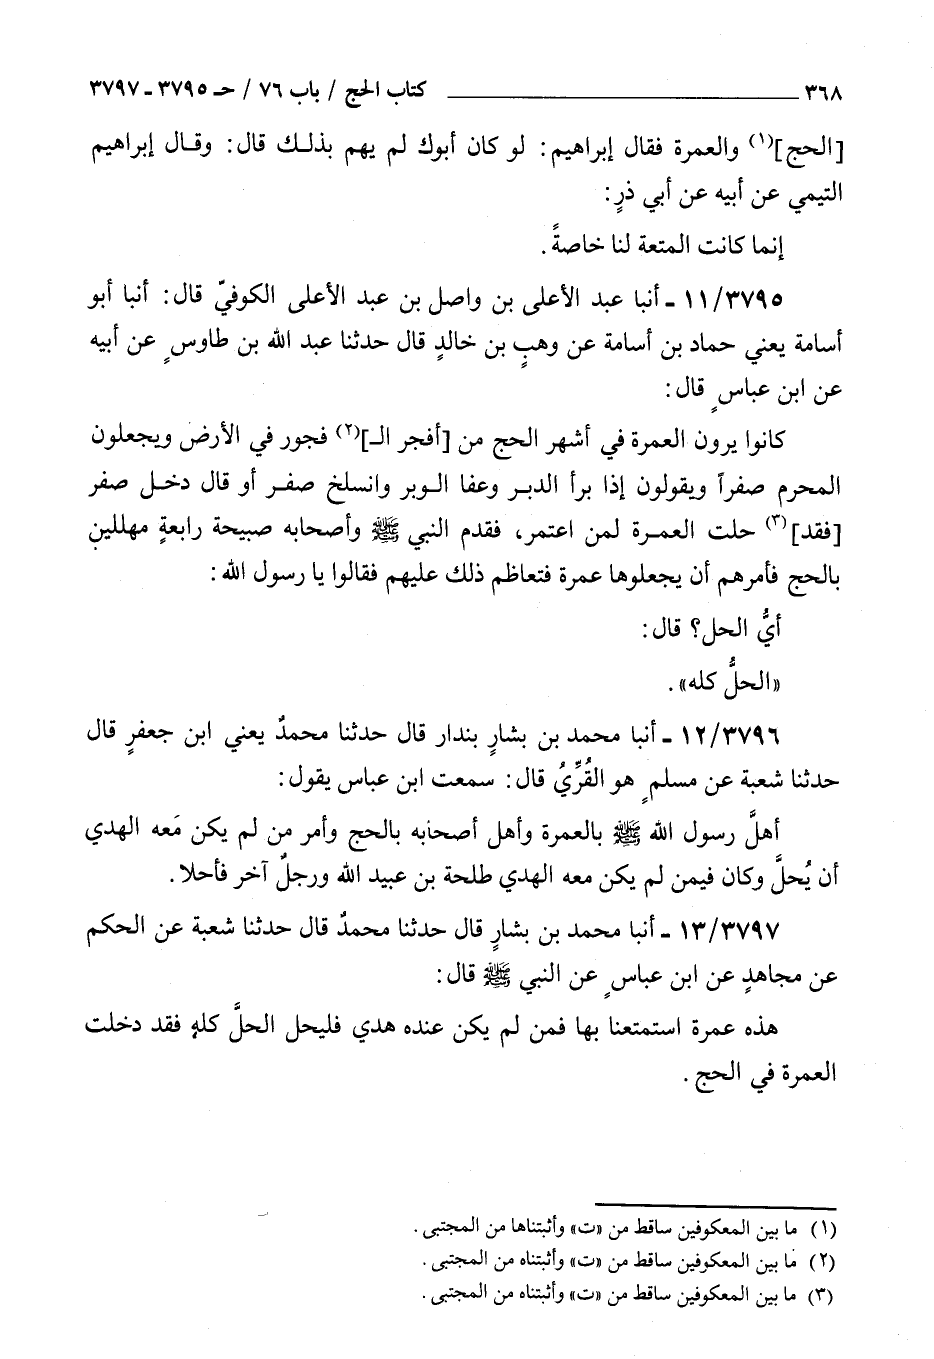 ٣٦٨ كتاب الحج / باب ٧٦ / حـ ٣٧٩٥ ـ ٣٧٩٧
[الحج](١) والعمرة فقال إبراهيم: لو كان أبوك لم يهم بذلك قال: وقال إبراهيم
التيمي عن أبيه عن أبي ذرٍ:
إنما كانت المتعة لنا خاصةً.
١١/٣٧٩٥ ـ أنبا عبد الأعلى بن واصل بن عبد الأعلى الكوفيّ قال: أنبا أبو
أسامة يعني حماد بن أسامة عن وهبٍ بن خالدٍ قال حدثنا عبد الله بن طاوسٍ عن أبيه
عن ابن عباسٍ قال:
كانوا يرون العمرة في أشهر الحج من [أفجر الـ](٢) فجور في الأرض ويجعلون
المحرم صفراً ويقولون إذا برأ الدبر وعفا الوبر وانسلخ صفر أو قال دخل صفر
[فقد](٣) حلت العمرة لمن اعتمر، فقدم النبي ﷺ وأصحابه صبيحة رابعةٍ مهللين
بالحج فأمرهم أن يجعلوها عمرة فتعاظم ذلك عليهم فقالوا يا رسول الله:
أيُّ الحل؟ قال:
«الحلُّ كله».
١٢/٣٧٩٦ ـ أنبا محمد بن بشارٍ بندار قال حدثنا محمدٌ يعني ابن جعفرٍ قال
حدثنا شعبة عن مسلمٍ هو القُرِّيُ قال: سمعت ابن عباس يقول:
أهلَّ رسول الله ﷺ بالعمرة وأهل أصحابه بالحج وأمر من لم يكن مَعه الهدي
أن يُحلَّ وكان فيمن لم يكن معه الهدي طلحة بن عبيد الله ورجلٌ آخر فأحلا.
١٣/٣٧٩٧ ـ أنبا محمد بن بشارٍ قال حدثنا محمدٌ قال حدثنا شعبة عن الحكم
عن مجاهدٍ عن ابن عباسٍ عن النبي ﷺ قال:
هذه عمرة استمتعنا بها فمن لم يكن عنده هدي فليحل الحلَّ كلهٍ فقد دخلت
العمرة في الحج.
(١) ما بين المعكوفين ساقط من «ت» وأثبتناها من المجتبى.
(٢) مَا بين المعكوفين ساقط من «ت» وأثبتناه من المجتبى.
(٣) ما بين المعكوفين ساقط من «ت» وأثبتناه من المجتبى.